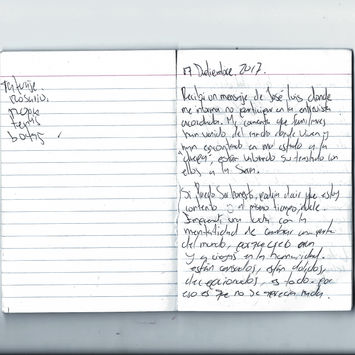 Tatuaje.
Rosario.
17 Diciembre. 2017.
Recibí un mensaje de José Luis, donde
me informa no participar en la entrevista
acordada. Me comenta que familiares
han venido del modo donde viven y
han encontrado en mal estado y la
están valorando su traslado con
ellos a la
Si Puedo Ser honesto, podría decir que estoy
contento y al mismo tiempo, duele.
una lucha con la
mentalidad de cambiar una parte
del mundo, porque creo aún
y a ciegas en la humanidad.
están cansados, están dolidos,
decepcionados, es todo. por
eso es que no se aprecia nada.